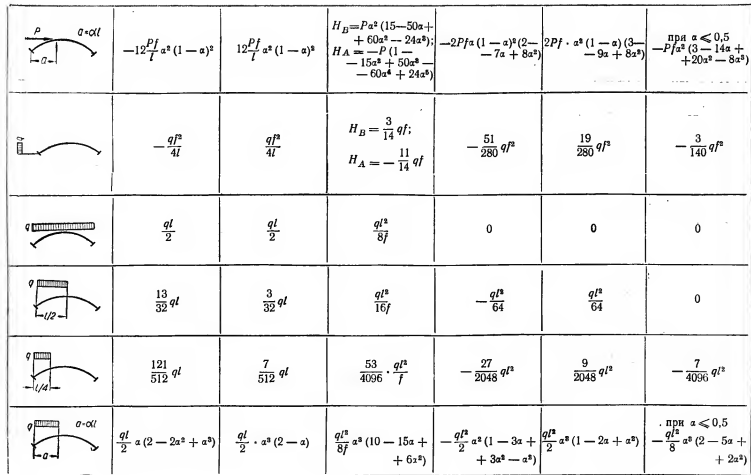 P a=αl
a
−12 Pf/l α² (1 − α)²
12 Pf/l α² (1 − α)²
H_B=Pα² (15—50α+
+ 60α² − 24α³);
H_A = −P (1 —
− 15α² + 50α³ —
− 60α⁴ + 24α⁵)
−2Pfα (1 − α)² (2—
− 7α + 8α²)
2Pf · α² (1 − α) (3—
− 9α + 8α²)
при α ⩽ 0,5
−Pfα² (3 − 14α +
+20α² − 8α³)
q
− qf²/4l
qf²/4l
H_B = 3/14 qf;
H_A = − 11/14 qf
− 51/280 qf²
19/280 qf²
− 3/140 qf²
q
ql/2
ql/2
ql²/8f
0
0
0
q
l/2
13/32 ql
3/32 ql
ql²/16f
− ql²/64
ql²/64
0
q
l/4
121/512 ql
7/512 ql
53/4096 · ql²/f
− 27/2048 ql²
9/2048 ql²
− 7/4096 ql²
q a=αl
a
ql/2 α (2 − 2α² + α³)
ql/2 · α³ (2 − α)
ql²/8f α³ (10 − 15α +
+ 6α²)
− ql²/2 α² (1 − 3α +
+ 3α² − α³)
ql²/2 α³ (1 − 2α + α²)
при α ⩽ 0,5
− ql²/8 α³ (2 − 5α +
+ 2α²)